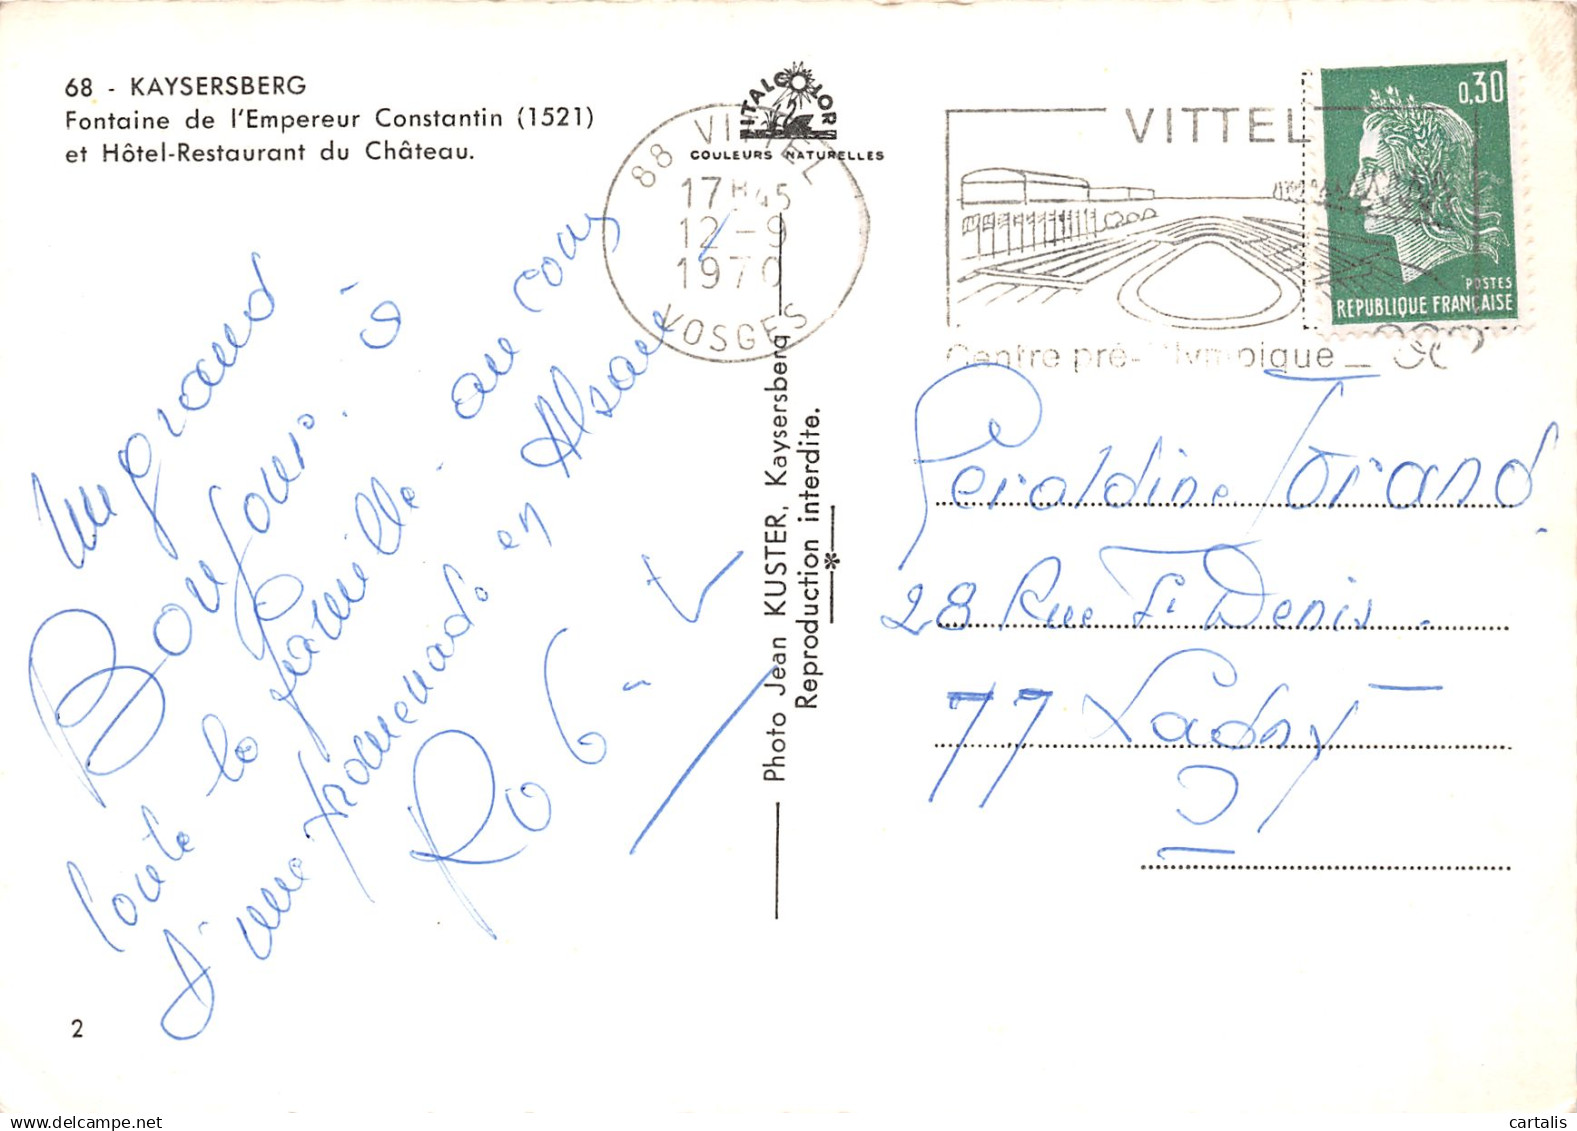 68 - KAYSERSBERG
Fontaine de l'Empereur Constantin (1521)
et Hôtel-Restaurant du Château.
ITALCOLOR
COULEURS NATURELLES
88 VITTEL
17H45
12-9
1970
VOSGES
VITTEL
Centre pré-Olympique
0,30
POSTES
REPUBLIQUE FRANÇAISE
Un grand
Bonjour à
toute la famille - au cours
d'une promenade en Alsace
Photo Jean KUSTER, Kaysersberg
Reproduction interdite.
Geraldine Torand
28 Rue St Denis
77 Lagny
2
cartalis